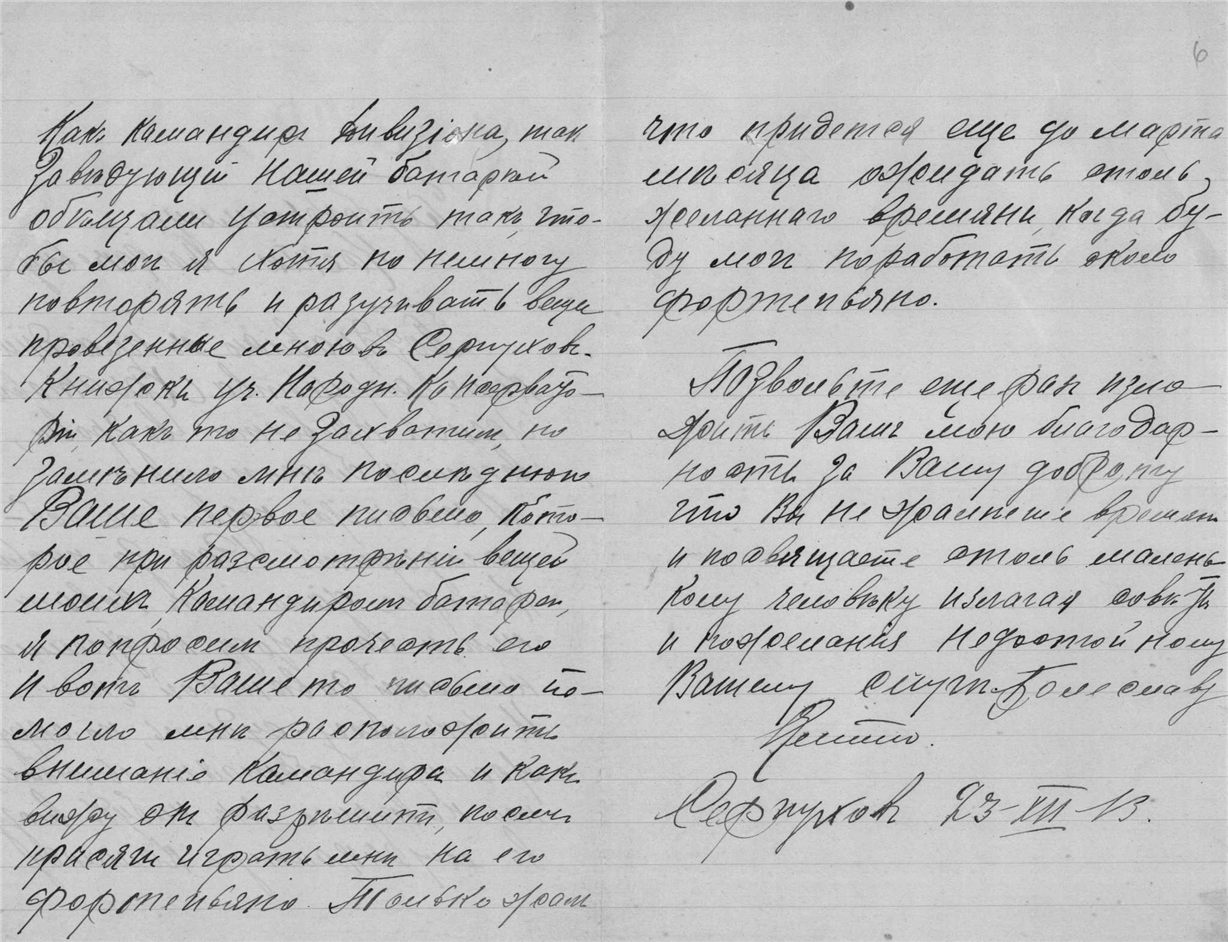 Какъ командиръ дивизіона, так
Завѣдующій Нашей батареей
обѣщали устроить такъ, что-
бы мог я хотя по немногу
повторять и разучивать вещи
провезенные мною въ Серпуховъ.
Книжки уч. Народн. Консерватo-
ріи, какъ то не захватил, но
замѣнило мнѣ последнюю
Ваше первое письмо, кото-
рое при разсмотрѣніи вещей
моихъ, Командиромъ батареи,
я попросилъ прочесть его
И вотъ Ваше то письмо по-
могло мнѣ расположить
вниманіе Командира и какъ
вижу он разрѣшитъ, послѣ
присяги играть мнѣ на его
фортепьяно. Только жаль
6
что придется еще до марта
мѣсяца ожидать столь
желаннаго времяни, когда бу-
ду мог поработать около
фортепьяно.
Позвольте еще раз изло-
жить Вамъ мою благодар-
ность за Вашу доброту
что Вы не жалѣете времени
и посвящаете столь малень
кому человѣку излагая совѣты
и пожелания недостойному
Вашему слугѣ Болеславу
Серпухов 23-XII-13.